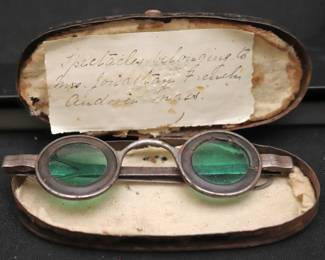 Spectacles belonging to
Mrs. Jonathan French
Andover Mass.